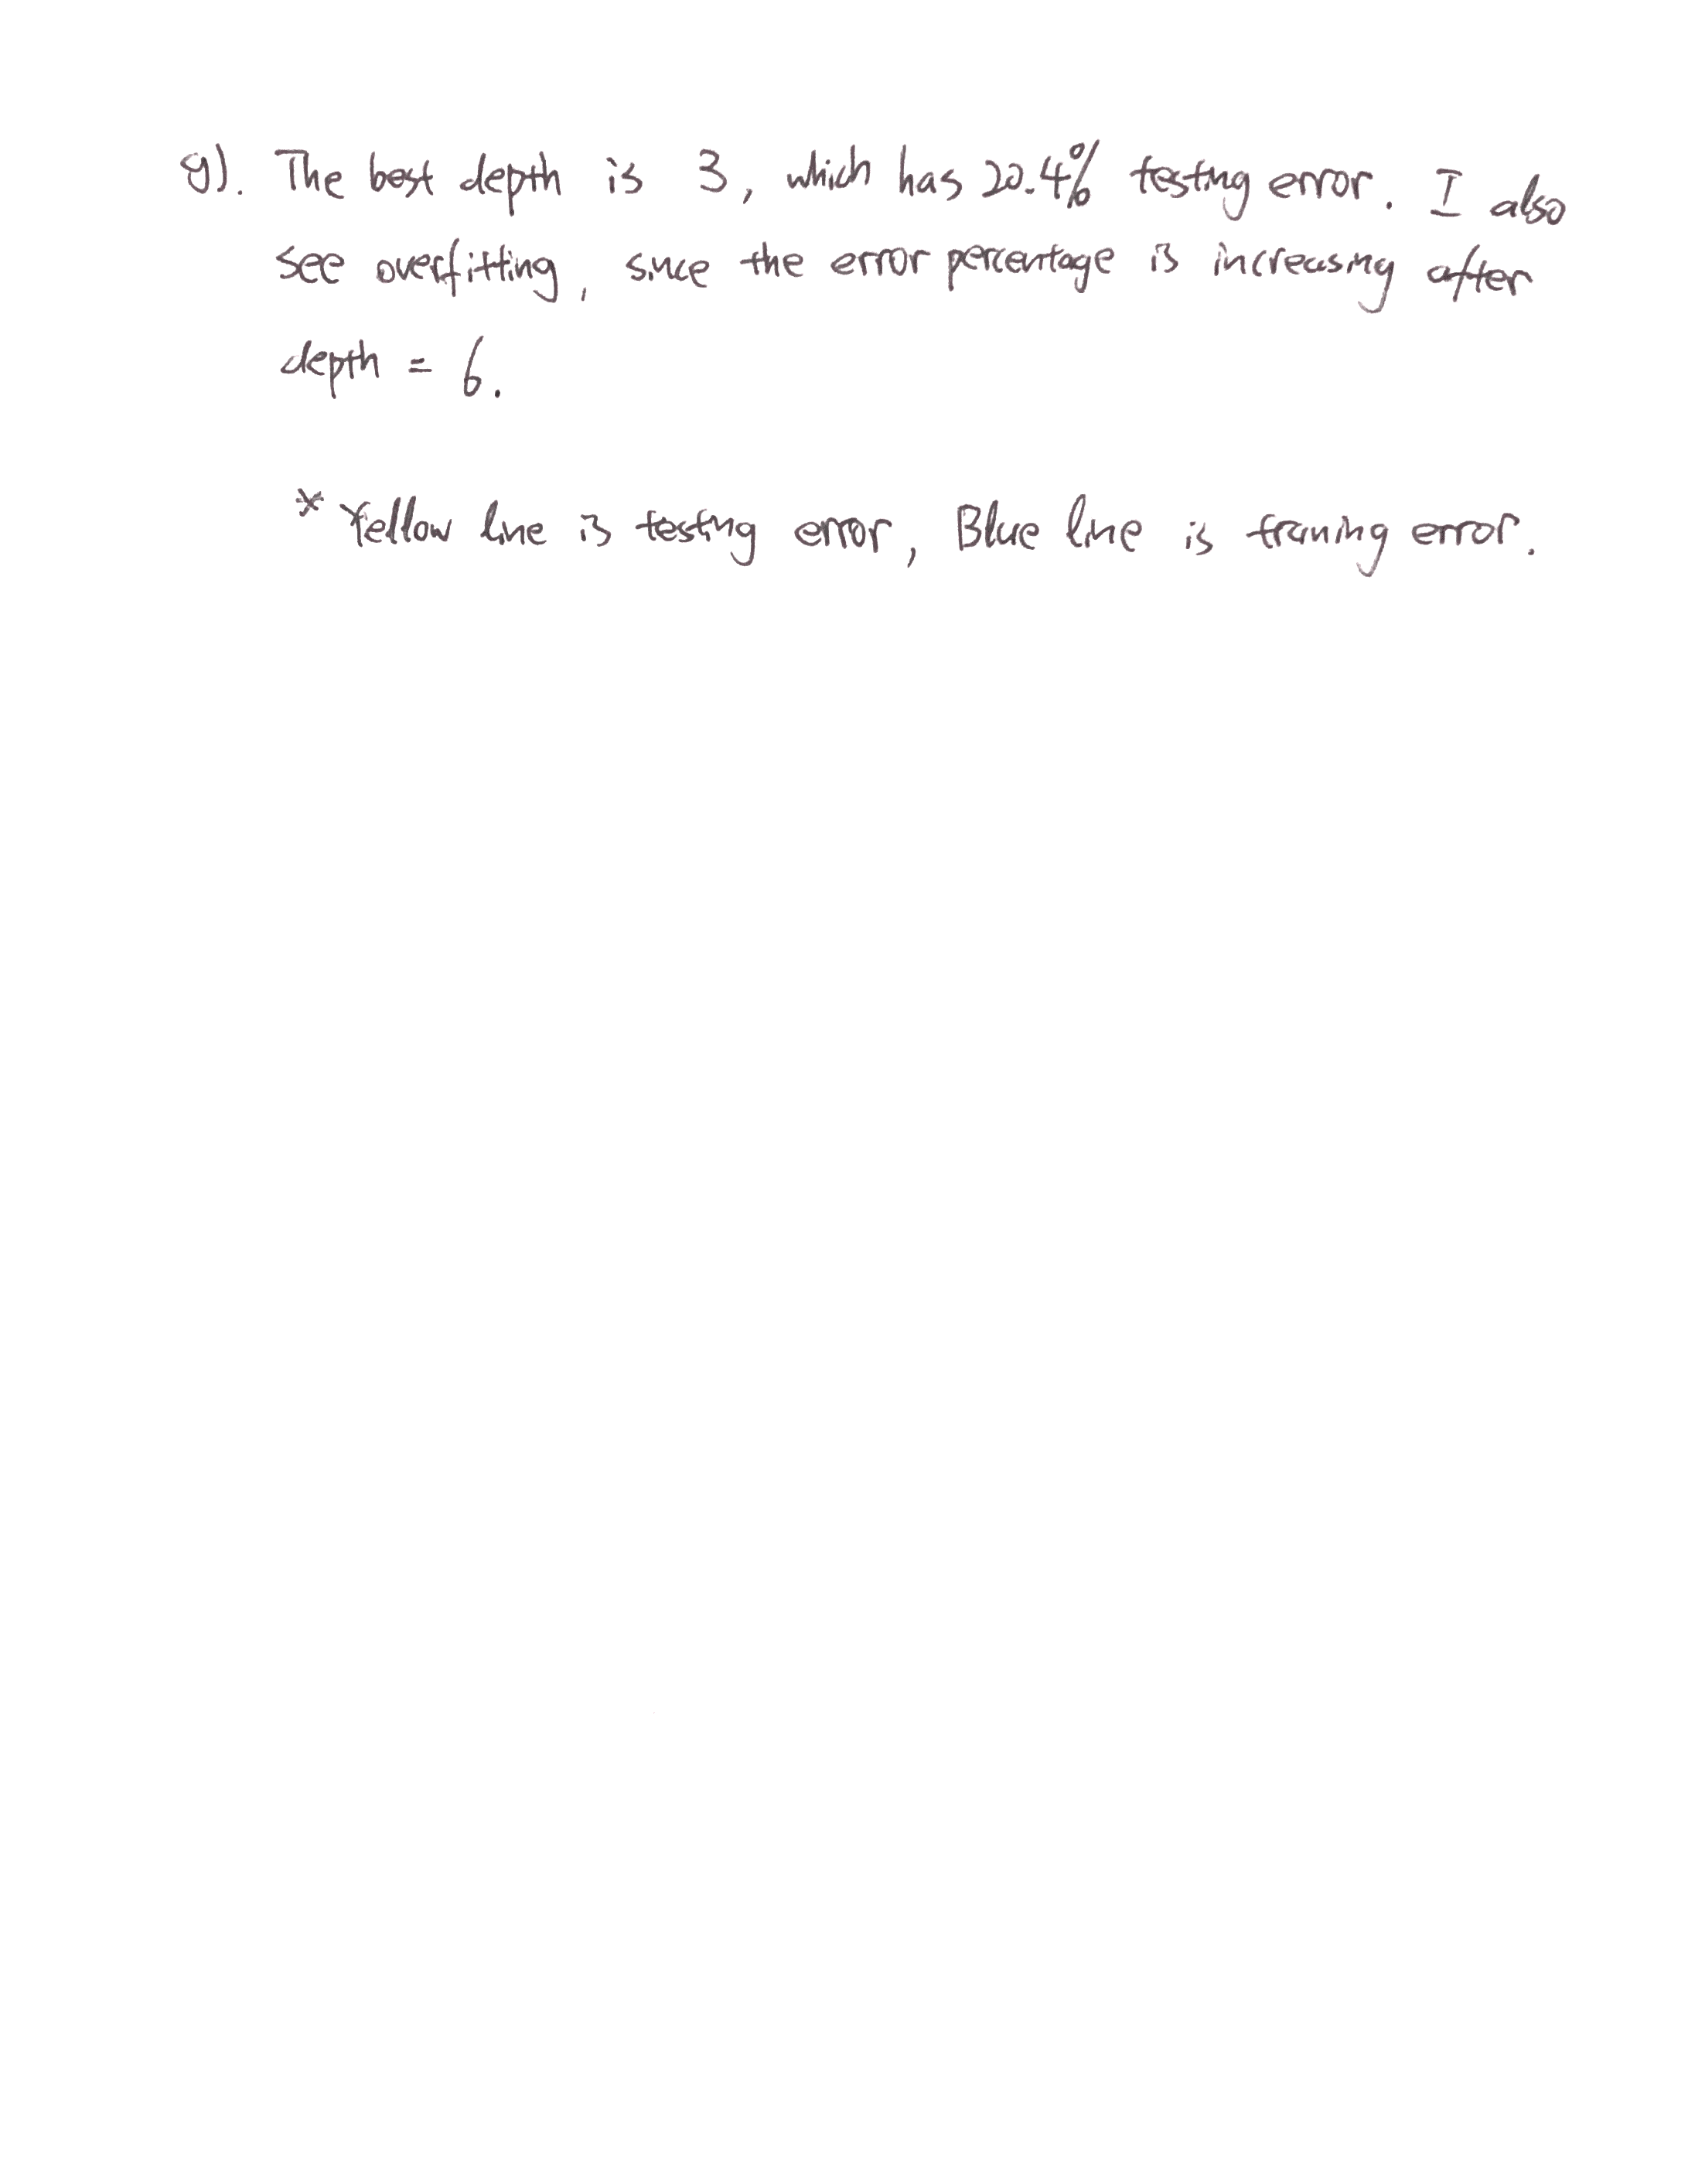 g). The best depth is 3, which has 20.4% testing error. I also
see overfitting, since the error percentage is increasing after
depth = 6.
* Yellow line is testing error, Blue line is training error.